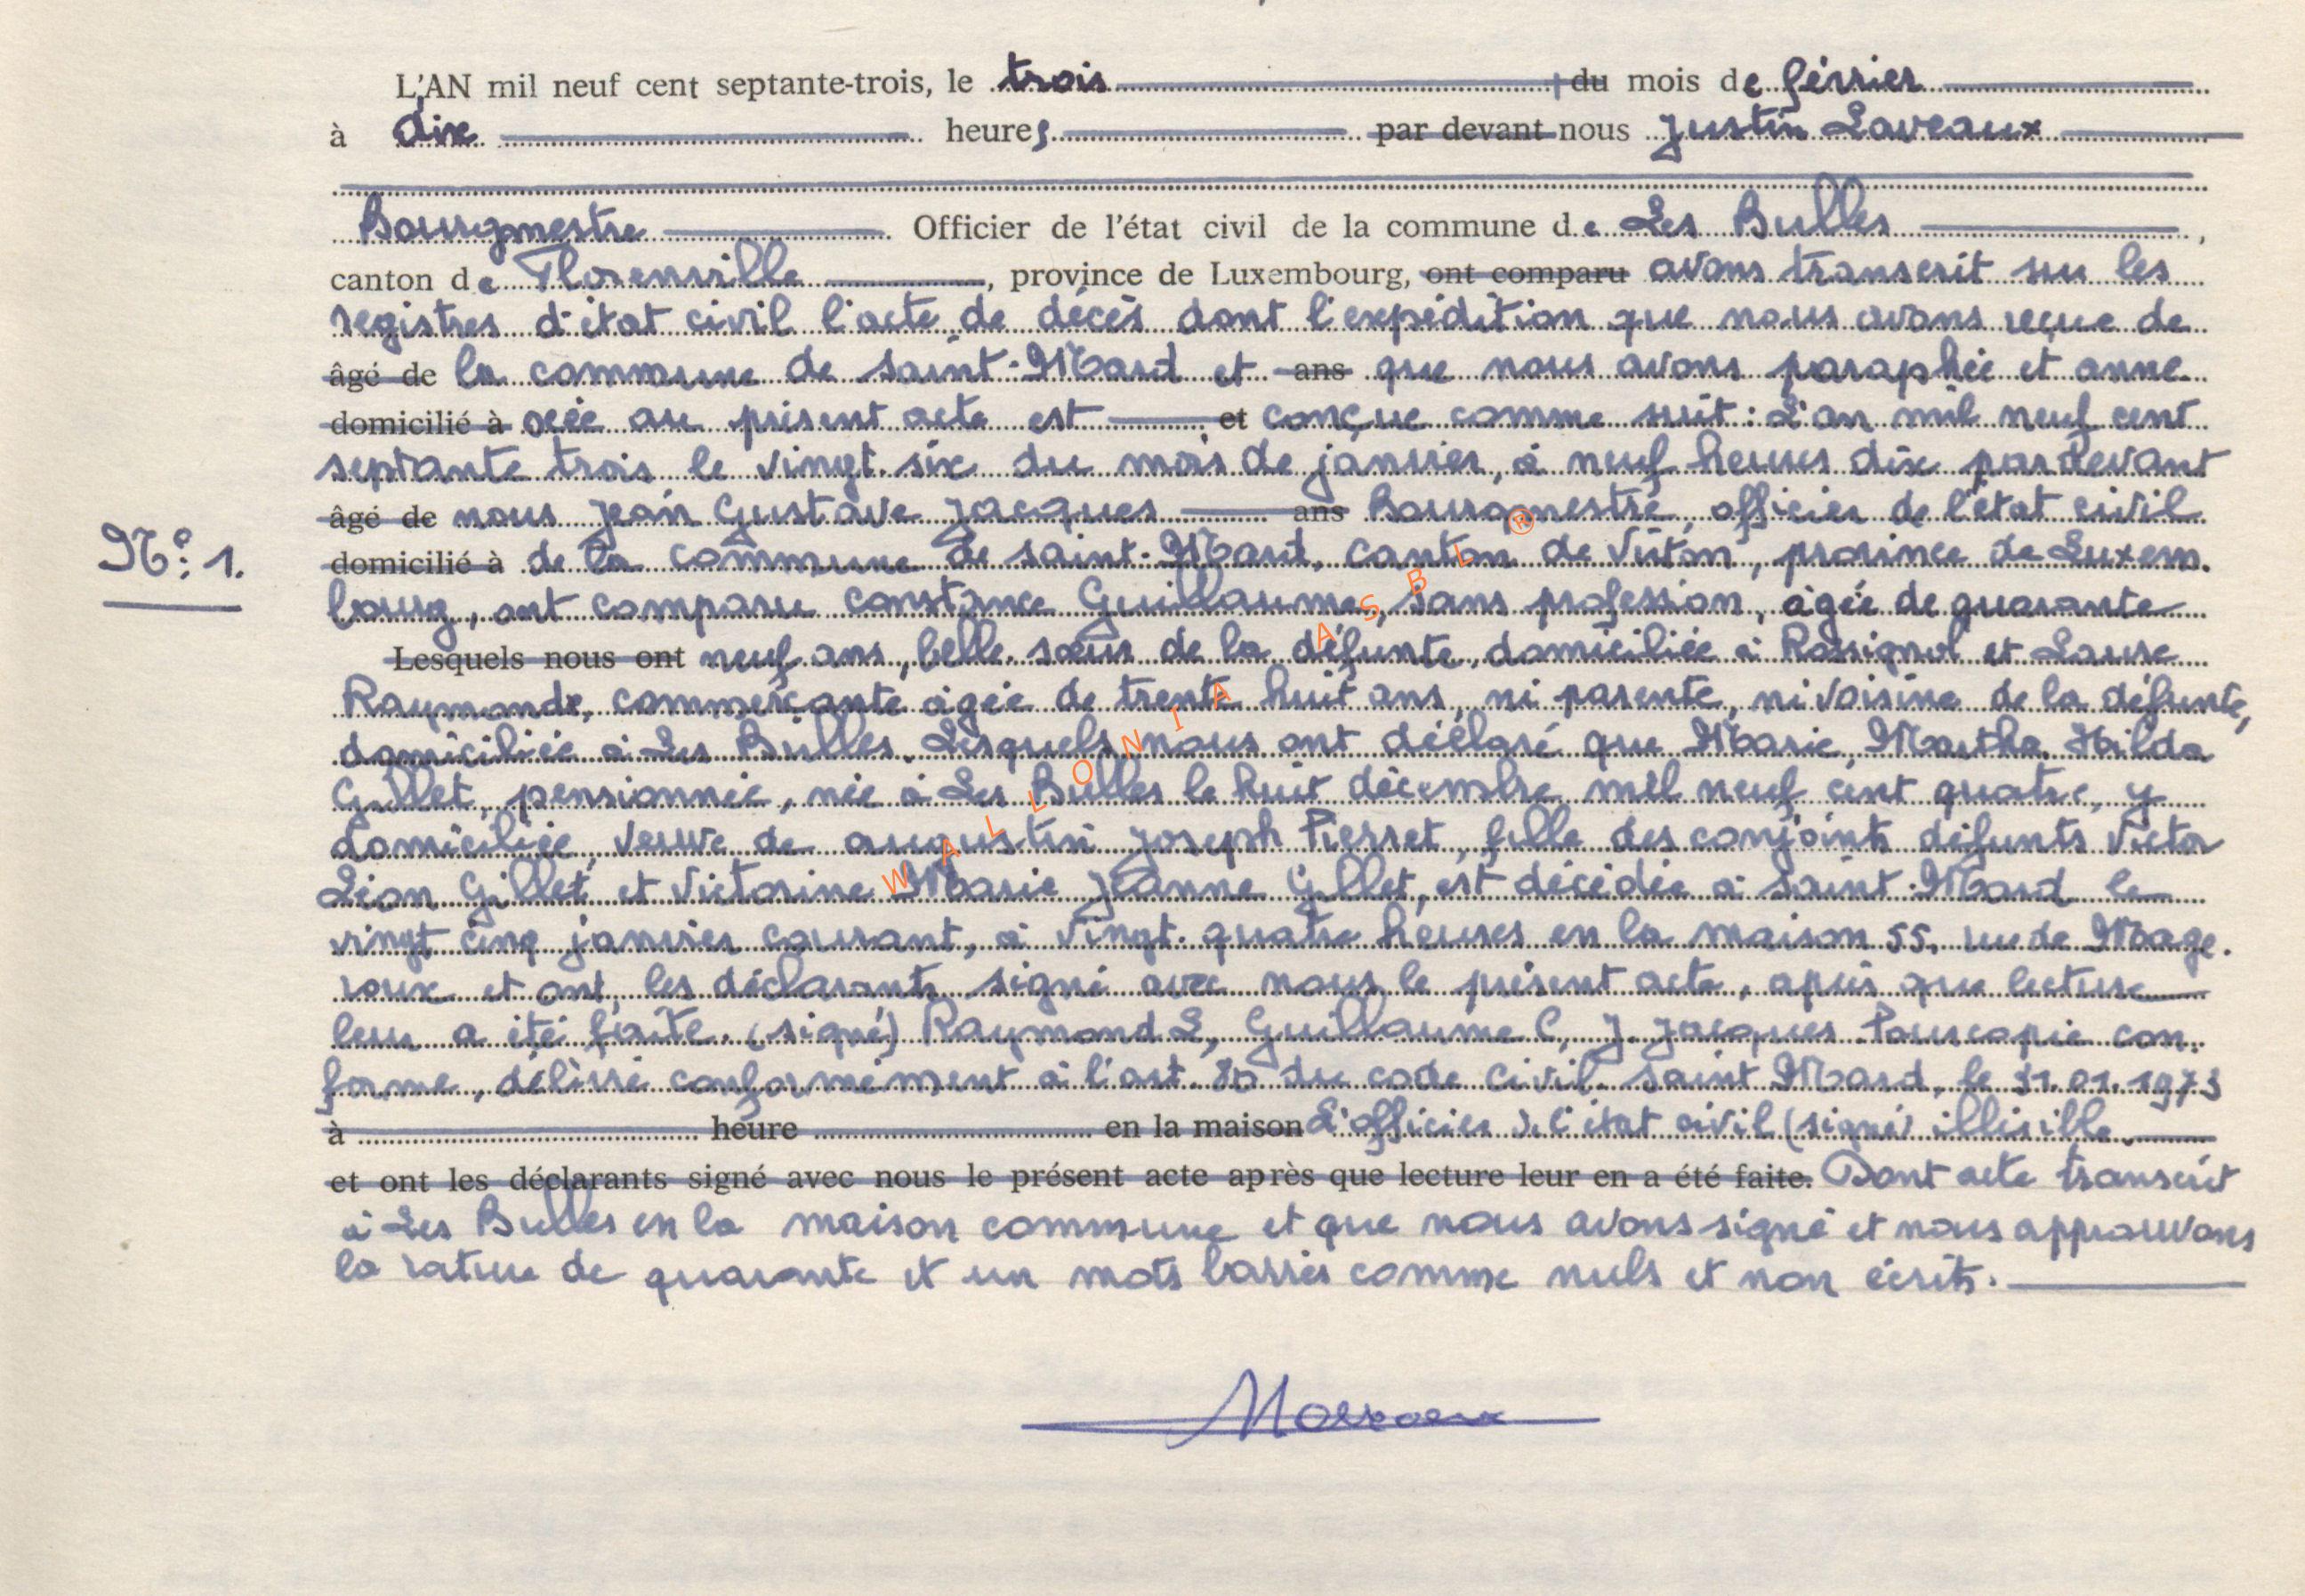 L'AN mil neuf cent septante-trois, le trois du mois de février
à dix heures par devant nous Justin Laveaux
Bourgmestre Officier de l'état civil de la commune de Les Bulles,
canton de Florenville, province de Luxembourg, ont comparu avons transcrit sur les
registres d'état civil l'acte de décès dont l'expédition que nous avons reçue de
âgé de la commune de Saint-Mard et ans que nous avons paraphée et anne
domicilié à xée au présent acte est et conçue comme suit : L'an mil neuf cent
septante trois le vingt-six du mois de janvier, à neuf heures dix par devant
N° : 1.
âgé de nous Jean Gustave Jacques ans Bourgmestre, officier de l'état civil
domicilié à de la commune de Saint-Mard, canton de Virton, province de Luxem-
bourg, ont comparu Constance Guillaume, sans profession, âgée de quarante
Lesquels nous ont neuf ans, belle-sœur de la défunte, domiciliée à Rossignol et Laure
Raymonde, commerçante âgée de trente huit ans, ni parente, ni voisine de la défunte,
domiciliée à Les Bulles. Lesquels nous ont déclaré que Marie, Martha Hilda
Gillet, pensionnée, née à Les Bulles le huit décembre mil neuf cent quatre, y
domiciliée, veuve de Augustin Joseph Pierret, fille des conjoints défunts Victor
Léon Gillet et Victorine Marie Jeanne Gillet, est décédée à Saint-Mard le
vingt cinq janvier courant, à vingt-quatre heures en la maison 55, rue de Mage-
roux et ont, les déclarants signé avec nous le présent acte, après que lecture
leur a été faite. (signé) Raymond L, Guillaume C, J. Jacques. Pour copie con-
forme, délivré conformément à l'art. 80 du code civil. Saint Mard, le 31.01.1973
à heure en la maison L'officier de l'état civil (signé) illisible.
et ont les déclarants signé avec nous le présent acte après que lecture leur en a été faite. Dont acte transcrit
à Les Bulles en la maison commune et que nous avons signé et nous approuvons
la rature de quarante et un mots barrés comme nuls et non écrits.
WALLONIA ASBL ®